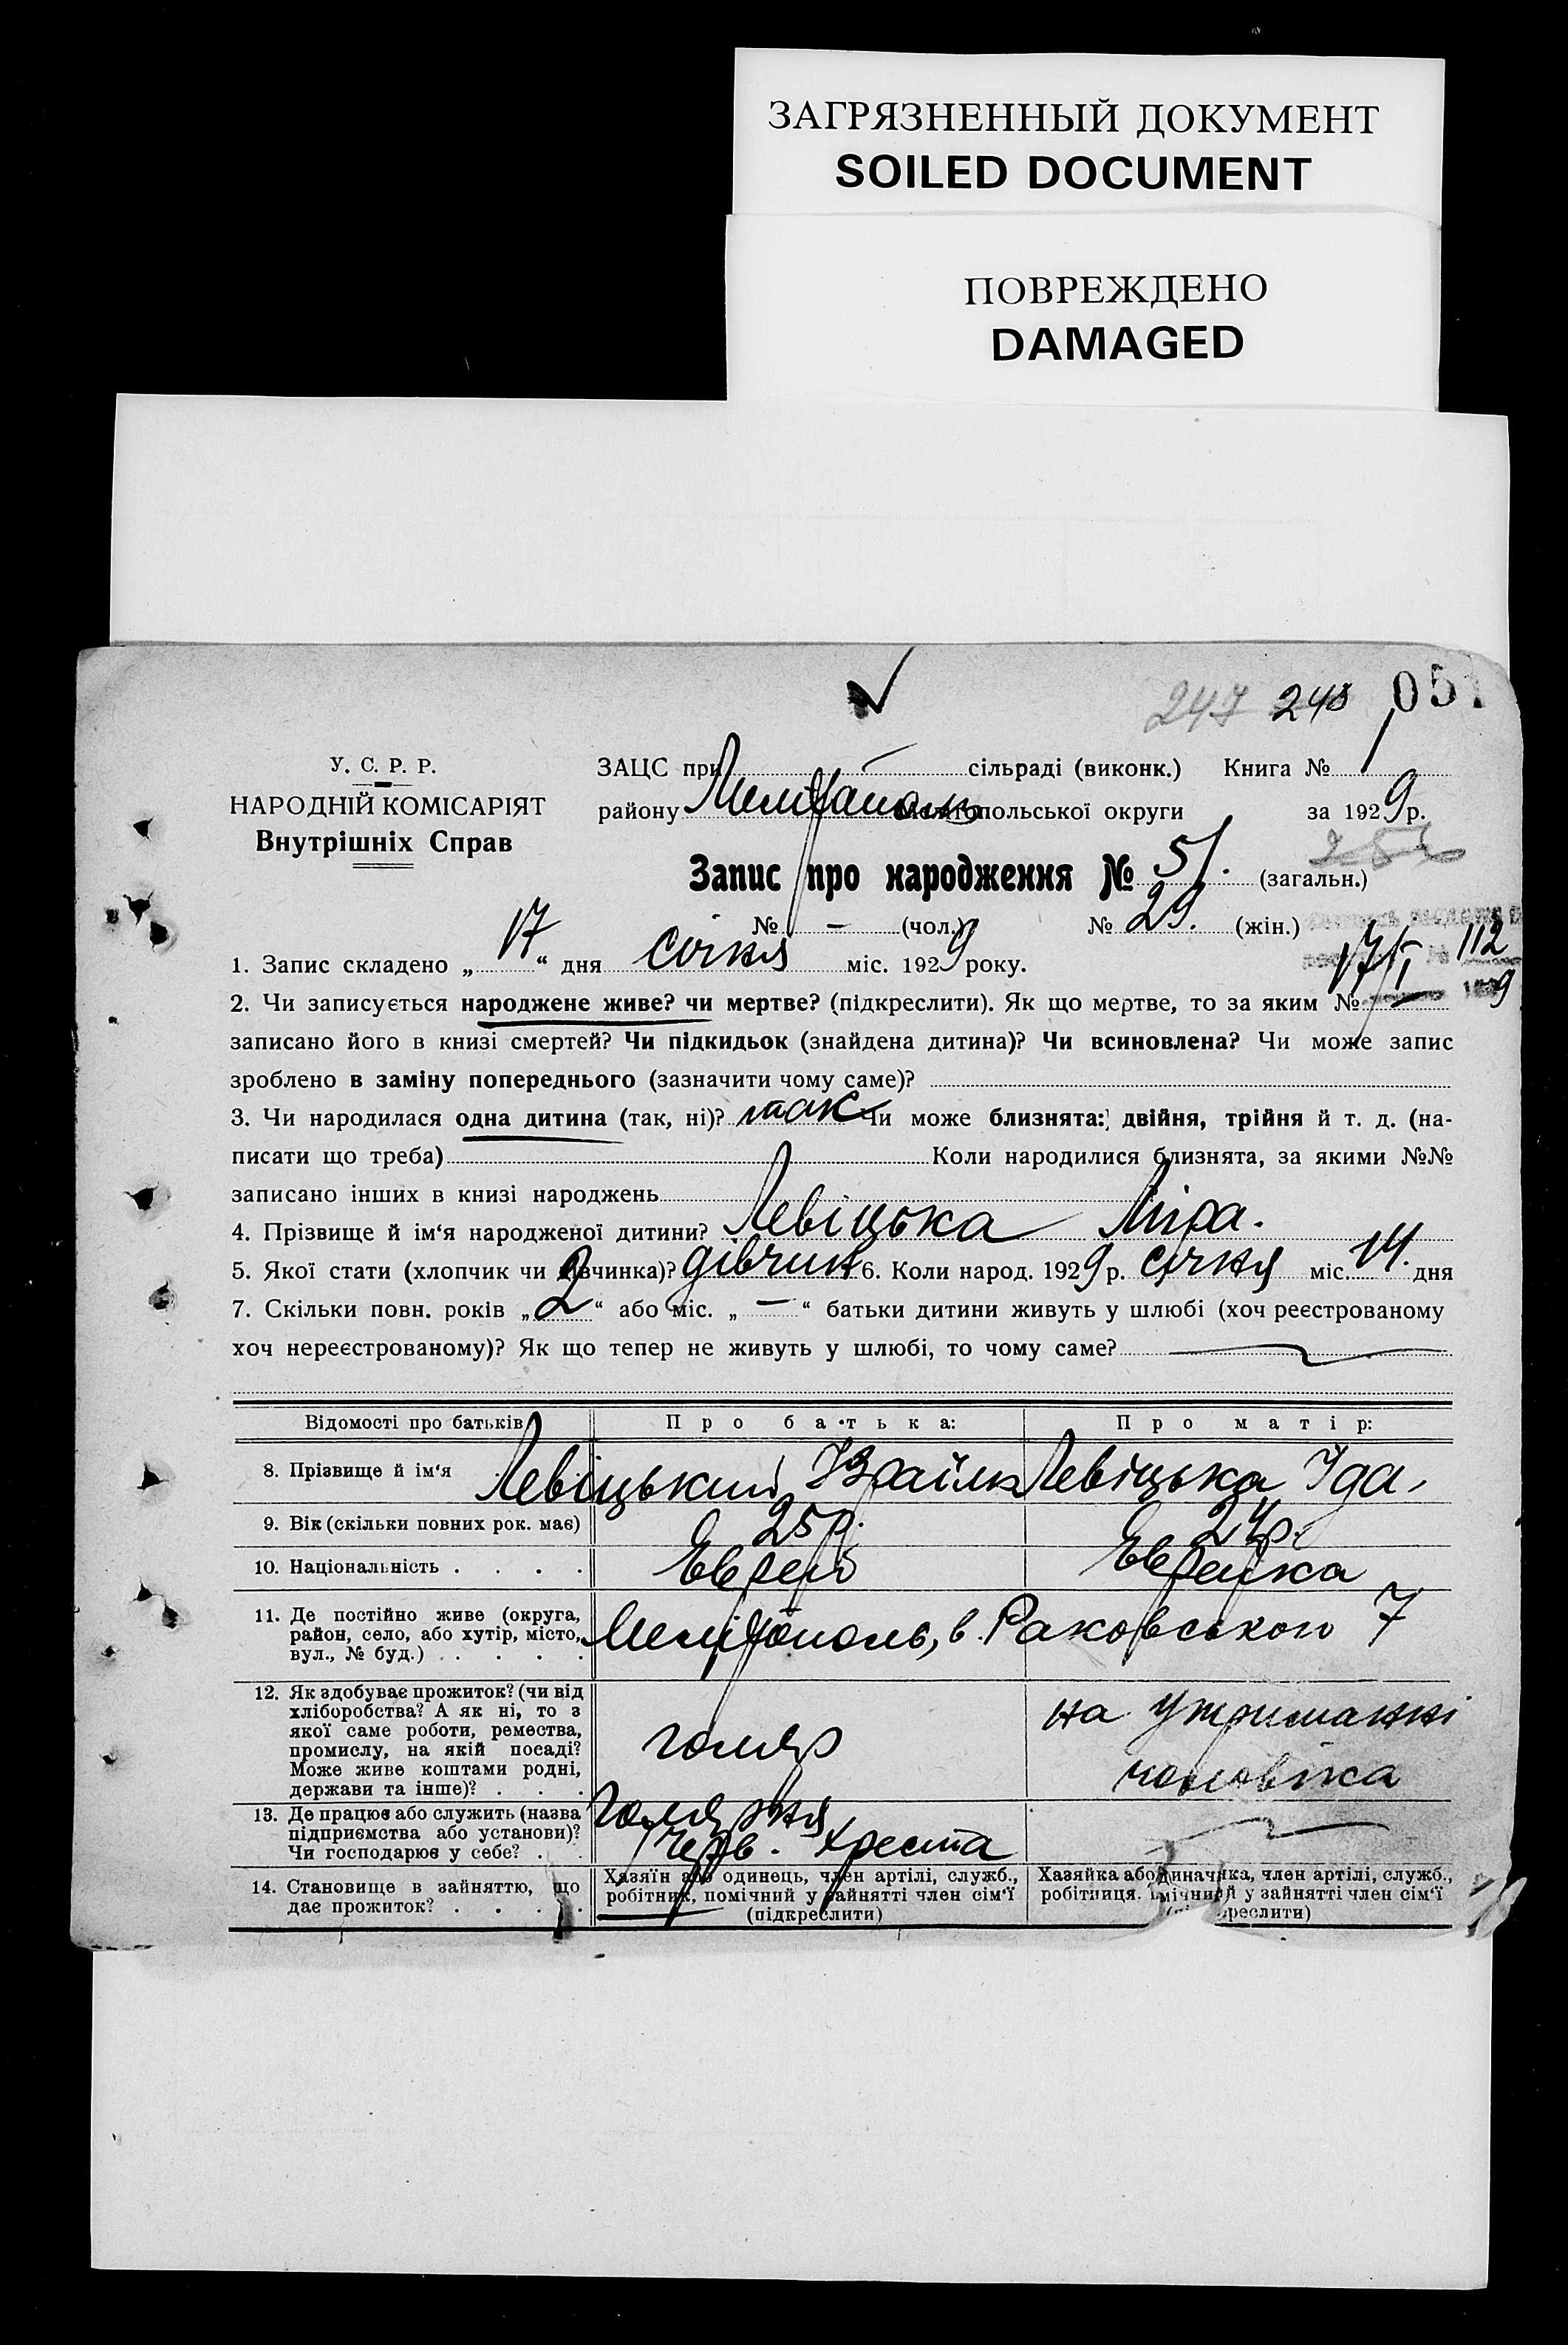 ЗАГРЯЗНЕННЫЙ ДОКУМЕНТ
SOILED DOCUMENT
ПОВРЕЖДЕНО
DAMAGED
247 248 051
У. С. Р. Р.
НАРОДНІЙ КОМІСАРІЯТ
Внутрішніх Справ
ЗАЦС при сільраді (виконк.) Книга № 1
району Мелітополь Мелітопольської округи за 1929 р.
Запис про народження № 51. (загальн.)
№ — (чол.) № 29. (жін.)
1. Запис складено „17“ дня січня міс. 1929 року.
17/I 112
2. Чи записується народжене живе? чи мертве? (підкреслити). Як що мертве, то за яким №
записано його в книзі смертей? Чи підкидьок (знайдена дитина)? Чи всиновлена? Чи може запис
зроблено в заміну попереднього (зазначити чому саме)?
3. Чи народилася одна дитина (так, ні)? так Чи може близнята: двійня, трійня й т. д. (на-
писати що треба) Коли народилися близнята, за якими №№
записано інших в книзі народжень
4. Прізвище й ім‘я народженої дитини? Левіцька Міра.
5. Якої стати (хлопчик чи дівчинка)? дівчин 6. Коли народ. 1929 р. січня міс. 14. дня
7. Скільки повн. років „2“ або міс. „—“ батьки дитини живуть у шлюбі (хоч реєстрованому
хоч нереєстрованому)? Як що тепер не живуть у шлюбі, то чому саме?
Відомості про батьків Про батька: Про матір:
8. Прізвище й ім‘я Левіцький Ізраїль Левіцька Іда.
9. Вік (скільки повних рок. має) 25 р. 24 р.
10. Національність . . . . Еврей Еврейка
11. Де постійно живе (округа,
район, село, або хутір, місто,
вул., № буд.) . . . . .
Мелітополь, в. Раковського 7
12. Як здобуває прожиток? (чи від
хліборобства? А як ні, то з
якої саме роботи, ремества,
промислу, на якій посаді?
Може живе коштами родні,
держави та інше)? . . .
голяр
на утриманні
чоловіка
13. Де працює або служить (назва
підприємства або установи)?
Чи господарює у себе? . .
Голярня
Черв. Хреста
14. Становище в зайняттю, що
дає прожиток? . . . . .
Хазяїн або одинець, член артілі, служб.,
робітник, помічний у зайнятті член сім‘ї
(підкреслити)
Хазяйка або одиначка, член артілі, служб.,
робітниця. помічний у зайнятті член сім‘ї
(підкреслити)